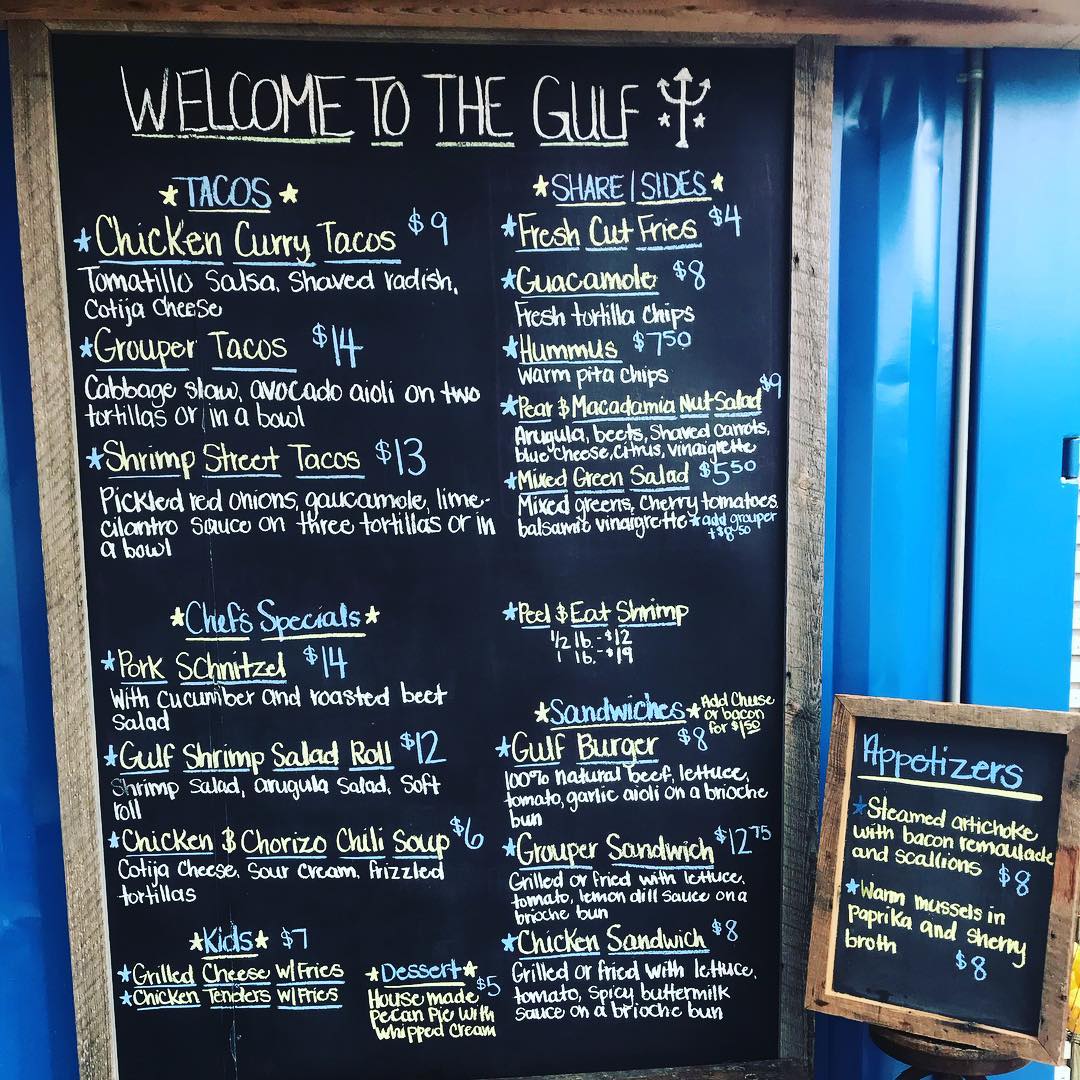 WELCOME TO THE GULF
TACOS
Chicken Curry Tacos $9
Tomatillo Salsa, Shaved radish,
Cotija Cheese
Grouper Tacos $14
Cabbage slaw, avocado aioli on two
tortillas or in a bowl
Shrimp Street Tacos $13
Pickled red onions, gaucamole, lime-
cilantro sauce on three tortillas or in
a bowl
Chef's Specials
Pork Schnitzel $14
With cucumber and roasted beet
Salad
Gulf Shrimp Salad Roll $12
Shrimp Salad, arugula Salad, Soft
roll
Chicken & Chorizo Chili Soup $6
Cotija Cheese, Sour Cream, frizzled
tortillas
Kids $7
Grilled Cheese w/Fries
Chicken Tenders w/Fries
Dessert $5
House made
Pecan Pie with
Whipped Cream
SHARE | SIDES
Fresh Cut Fries $4
Guacamole $8
Fresh tortilla chips
Hummus $7 50
Warm pita chips
Pear & Macadamia Nut Salad $9
Arugula, beets, Shaved carrots,
blue cheese, citrus, vinaigrette
Mixed Green Salad $5 50
Mixed greens, Cherry tomatoes,
balsamic vinaigrette *add grouper
+$8 50
Peel & Eat Shrimp
1/2 lb. - $12
1 lb. - $19
Sandwiches
Add Cheese
or bacon
for $1 50
Gulf Burger $8
100% natural beef, lettuce,
tomato, garlic aioli on a brioche
bun
Grouper Sandwich $12 75
Grilled or fried with lettuce,
tomato, lemon dill sauce on a
brioche bun
Chicken Sandwich $8
Grilled or fried with lettuce,
tomato, spicy buttermilk
sauce on a brioche bun
Appetizers
Steamed artichoke
with bacon remoulade
and scallions $8
Warm mussels in
paprika and sherry
broth
$8